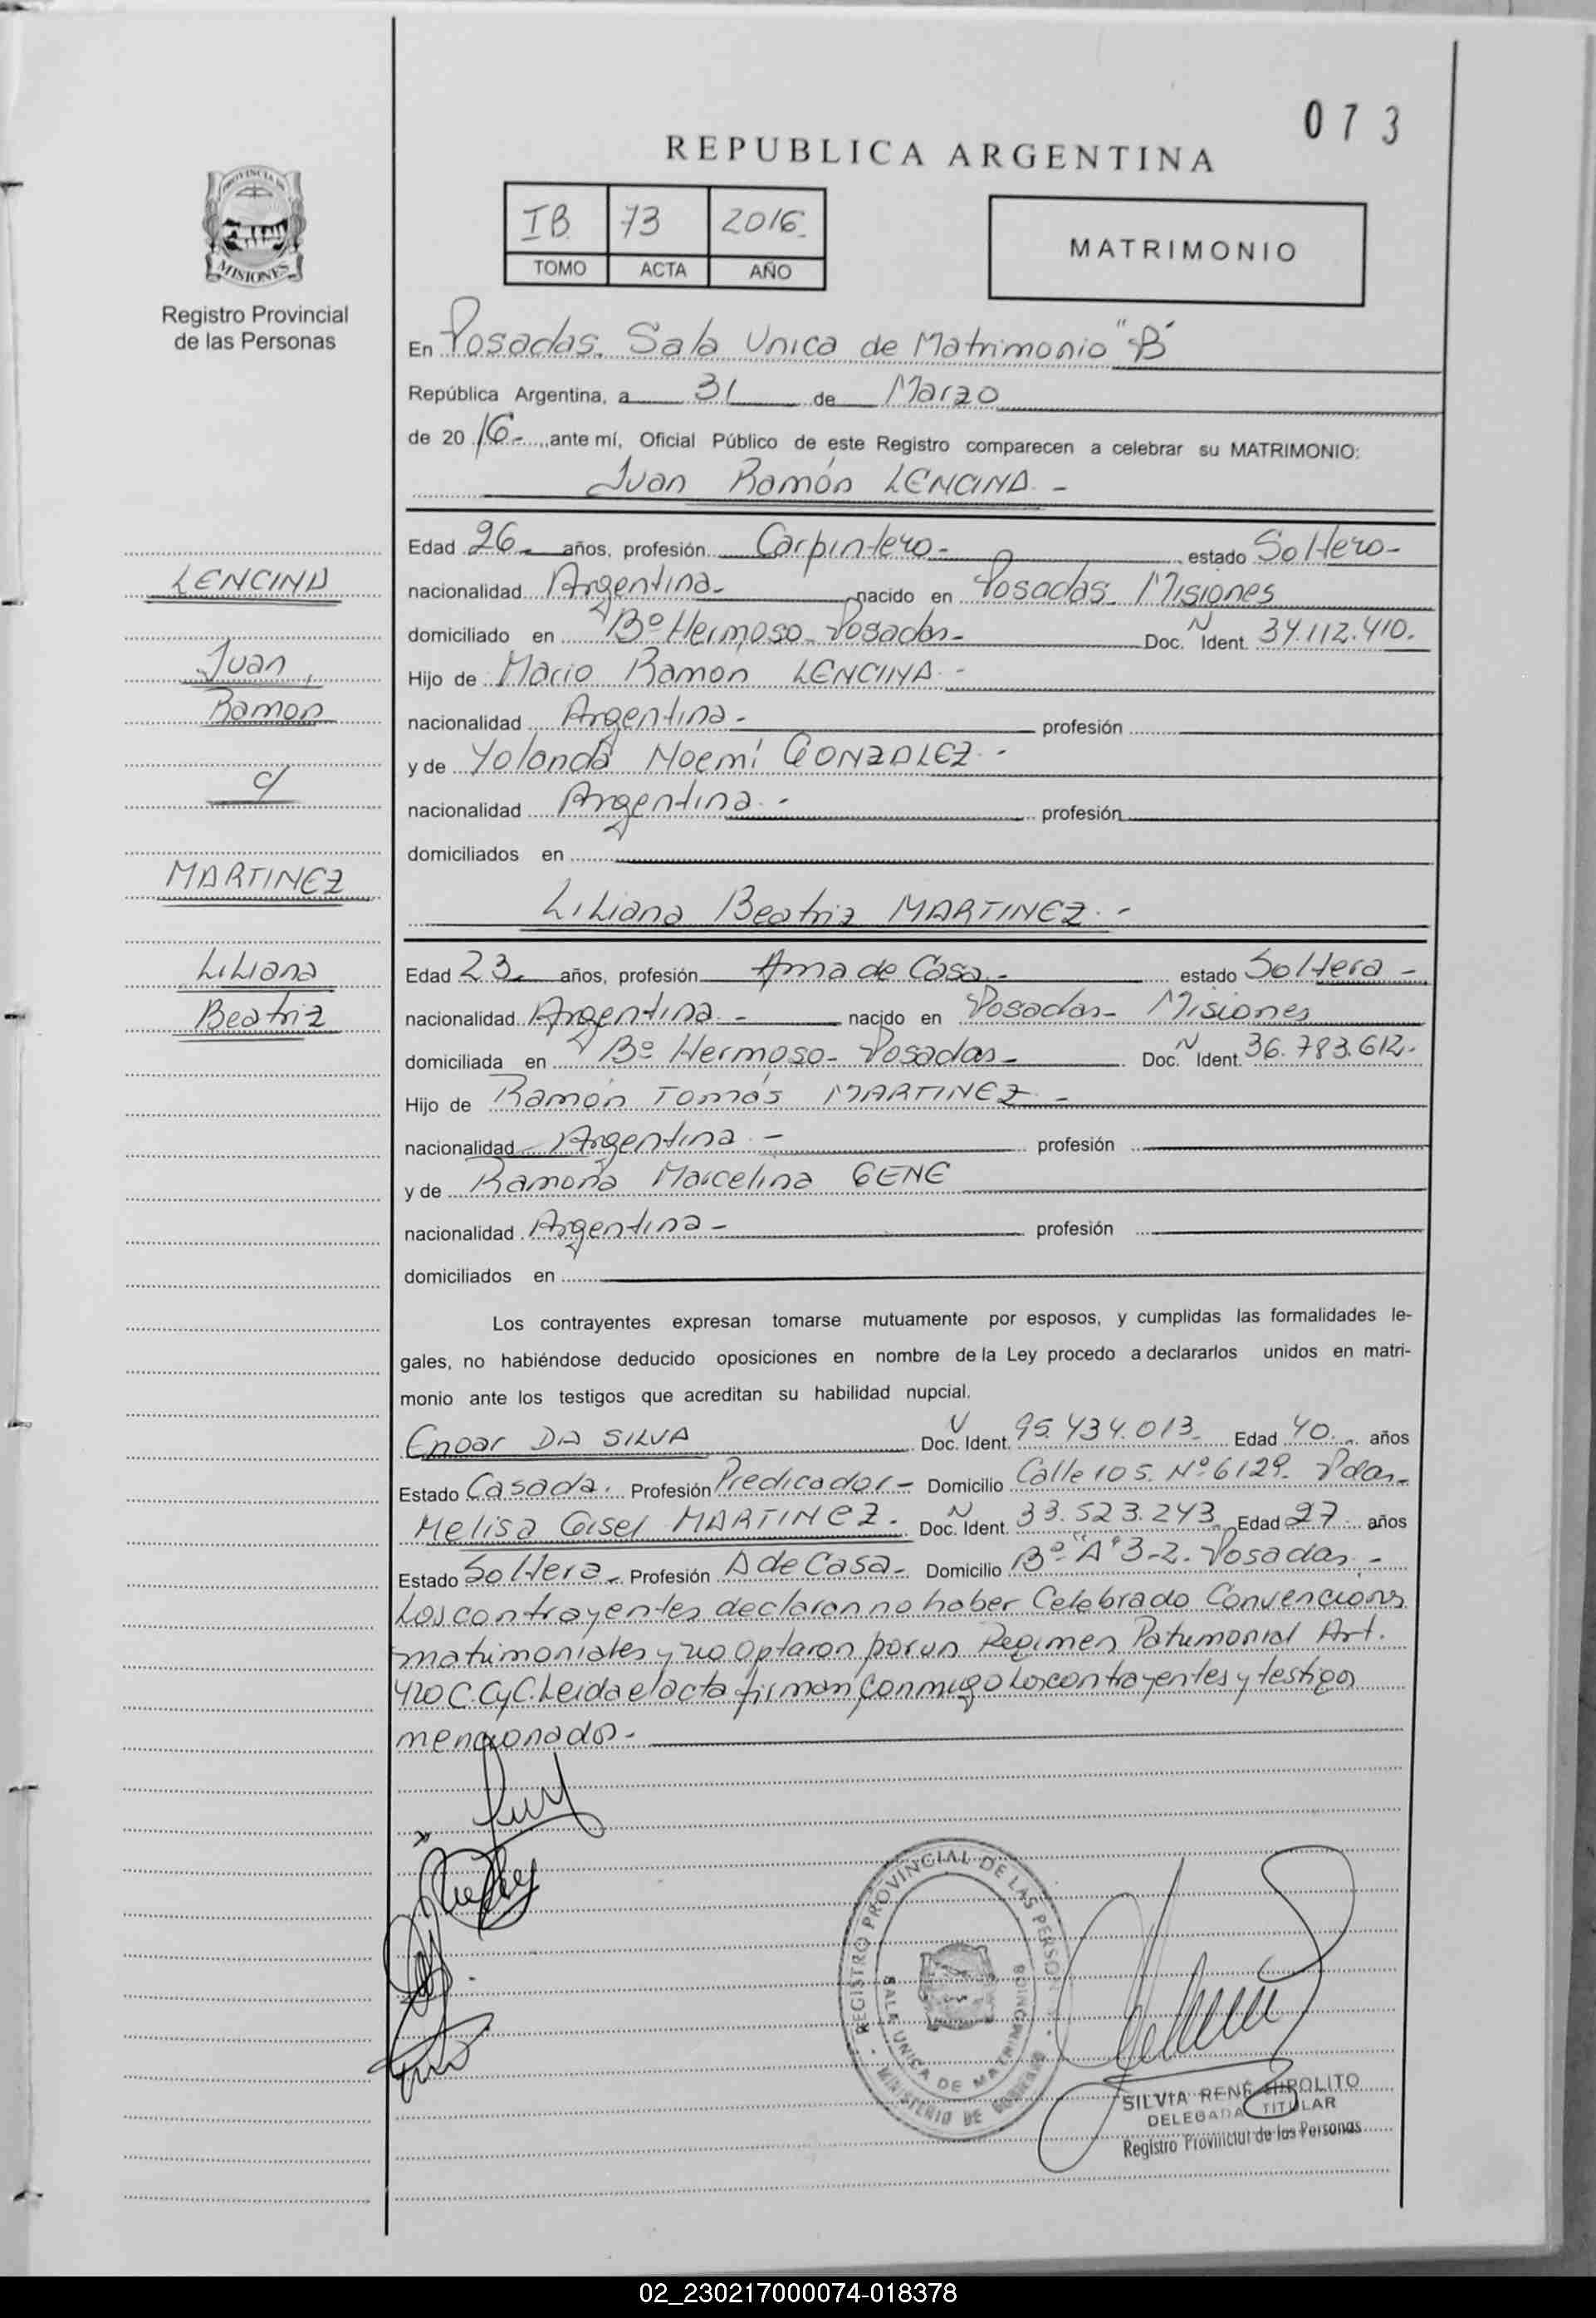 073
REPUBLICA ARGENTINA
IB 73 2016
TOMO ACTA AÑO
MATRIMONIO
PROVINCIA DE
MISIONES
Registro Provincial
de las Personas
En Posadas. Sala Unica de Matrimonio "B"
República Argentina, a 31 de Marzo
de 2016.- ante mí, Oficial Público de este Registro comparecen a celebrar su MATRIMONIO:
Juan Ramón LENCINA.-
Edad 26.- años, profesión Carpintero.- estado Soltero-
LENCINA
nacionalidad Argentina.- nacido en Posadas. Misiones
domiciliado en Bº Hermoso. Posadas.- Doc. N Ident. 34.112.410.
Juan
Hijo de Mario Ramon LENCINA.-
Ramon
nacionalidad Argentina.- profesión
y de Yolanda Noemí GONZALEZ.-
c/
nacionalidad Argentina.- profesión
domiciliados en
MARTINEZ
Liliana Beatriz MARTINEZ.-
Liliana
Edad 23.- años, profesión Ama de Casa.- estado Soltera-
Beatriz
nacionalidad Argentina.- nacido en Posadas- Misiones
domiciliada en Bº Hermoso- Posadas- Doc. N Ident. 36.783.612.-
Hijo de Ramón Tomás MARTINEZ.-
nacionalidad Argentina.- profesión
y de Ramona Marcelina GENE
nacionalidad Argentina- profesión
domiciliados en
Los contrayentes expresan tomarse mutuamente por esposos, y cumplidas las formalidades le-
gales, no habiéndose deducido oposiciones en nombre de la Ley procedo a declararlos unidos en matri-
monio ante los testigos que acreditan su habilidad nupcial.
Enoar DA SILVA Doc. N Ident. 95.434.013.- Edad 40.- años
Estado Casada. Profesión Predicador- Domicilio Calle 105. Nº 6129- Pdas.-
Melisa Gisel MARTINEZ. Doc. N Ident. 33.523.243 Edad 27 años
Estado Soltera.- Profesión A de Casa- Domicilio Bº "A" 3-2. Posadas.-
Los contrayentes declaron no haber Celebrado Convenciones
matrimoniales y no optaron por un Regimen Patrimonial Art.
420 C.CyC. Leida el acta firman conmigo Los contrayentes y testigos
mencionados.-
REGISTRO PROVINCIAL DE LAS PERSONAS
SALA UNICA DE MATRIMONIOS
MINISTERIO DE GOBIERNO
SILVIA RENÉ HIPOLITO
DELEGADA TITULAR
Registro Provincial de las Personas
02_230217000074-018378